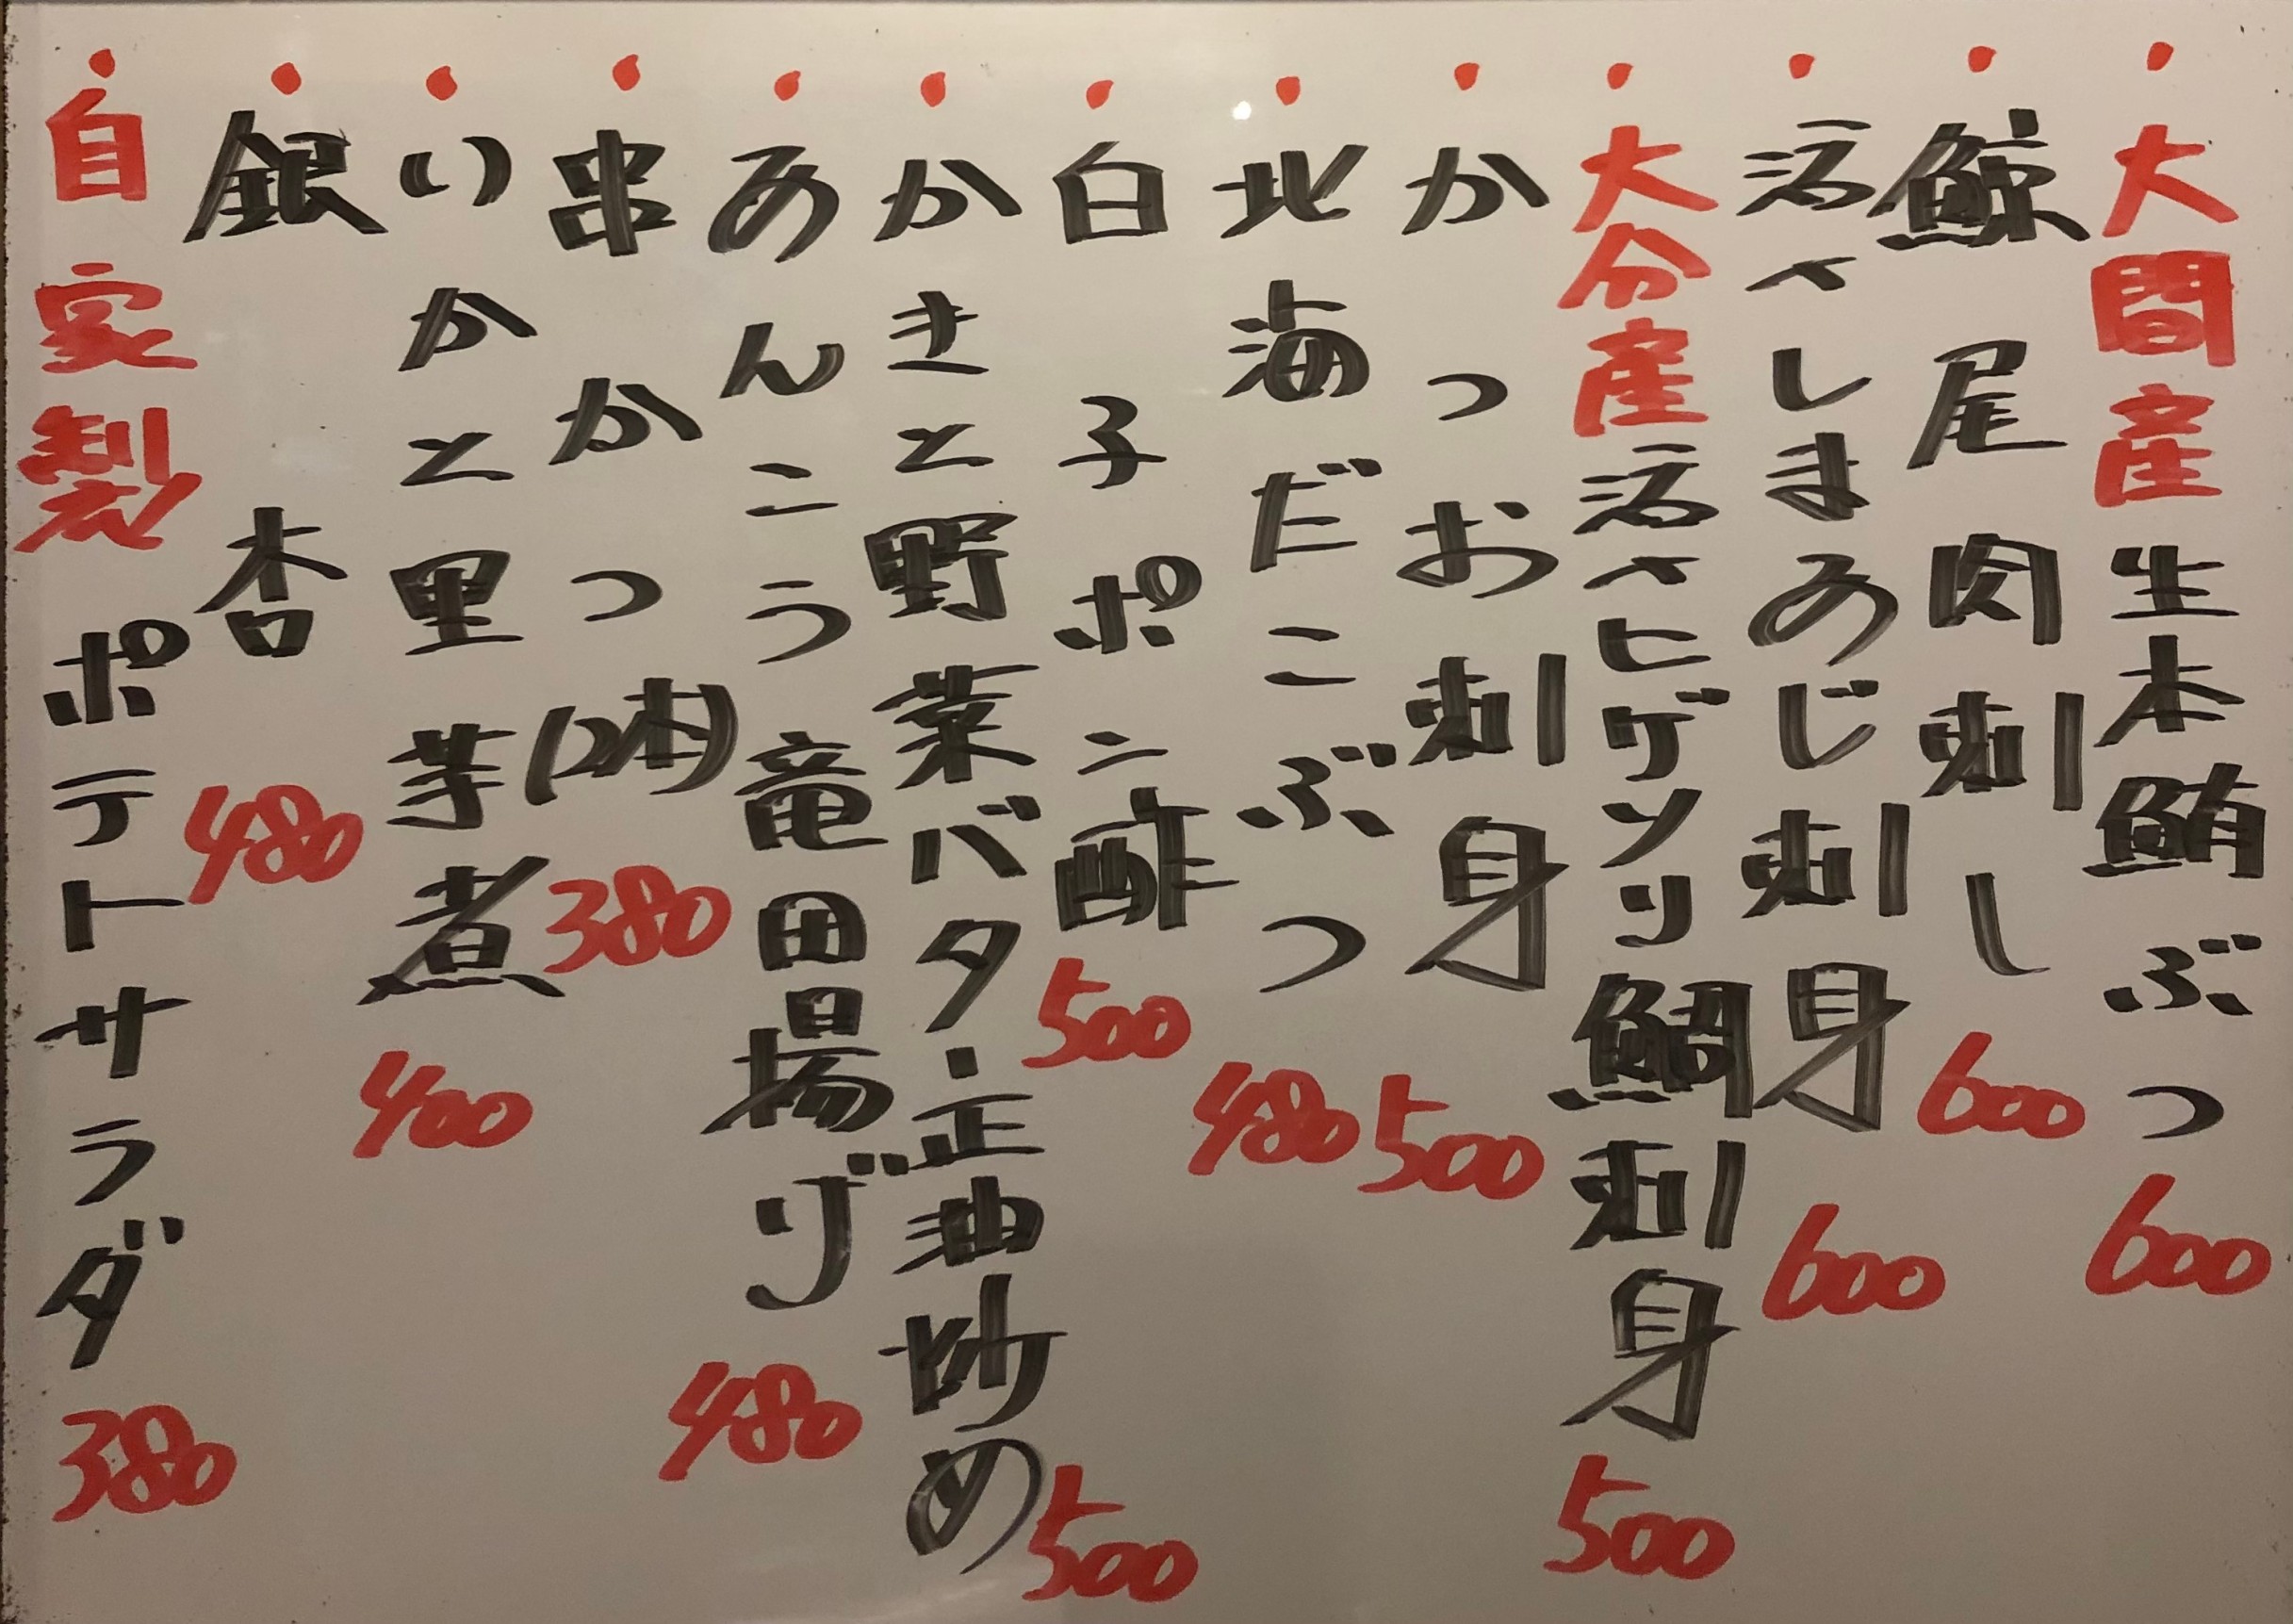 ・大間産生本鮪ぶつ 600
・鯨尾肉刺し 600
・活〆しまあじ刺身 600
・大分産活〆ヒゲソリ鯛刺身 500
・かつお刺身 500
・北海だこぶつ 480
・白子ポン酢 500
・かきと野菜バター正油炒め 500
・あんこう竜田揚げ 480
・串かつ(2本) 380
・いかと里芋煮 400
・銀杏 480
・自家製ポテトサラダ 380